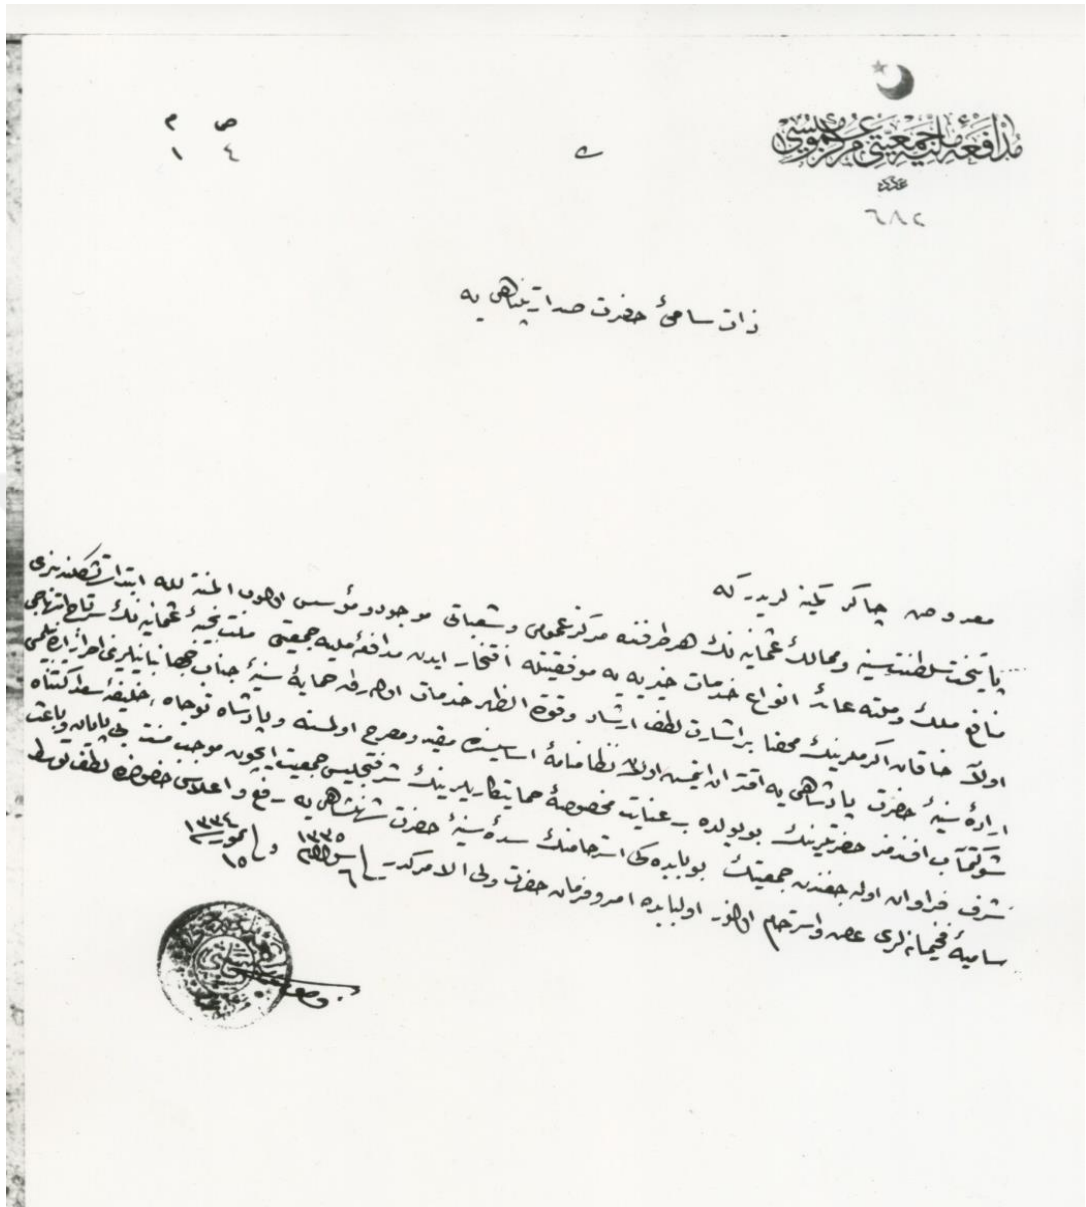 مدافعهٔ ملیه جمعیتی مرکز عمومیسی
عدد
٦٨٢
ص م
٤ ١
ذات سامئ حضرت صدارتپناهی یه
معروض چاکر کمینه لریدر که
پایتخت سلطنت سنیه و ممالك عثمانیه نك هر طرفنده مرکز عمومی و شعباتی موجود و مؤسس اولان المنة لله ابتدای تشکلندنبری
منافع ملك و ملته عائد انواع خدمات خیریه یه موفقیتله افتخار ایدن مدافعهٔ ملیه جمعیتی ملت نجیبهٔ عثمانیه نك سرتاج ابتهاجی
اولان خاقان اکرملرینك محضا بر اشارت لطف ارشاد و قوة الظهر خدمات اوله رق حمایهٔ سنیهٔ جناب جهانبانیلرینی احراز ایتمسی
ارادهٔ سنیهٔ حضرت پادشاهی یه اقتران ایتمش اولان نظامنامهٔ اساسیسنده مقید و مصرح اولمسنه و پادشاه توجاه، خلیفهٔ
شوکتمآب افندمز حضرتلرینك بو یولده بر عنایت مخصوصهٔ حمایتکاریلرینك شرفتجلیسی جمعیت ایچون موجب منت بی پایان و باعث
شرف فراوان اوله جغندن جمعیتك بو بابده کی استرحامنك سدهٔ سنیهٔ حضرت شهنشاهی یه رفع و اعلاسی خصوصنده لطف توسط
سامیهٔ فخیمانه لری عرض و استرحام اولنور اولبابده امر و فرمان حضرت ولی الامرکدر
٦ ١٣٣٥ و فی ١٥ تموز ١٣٣٤